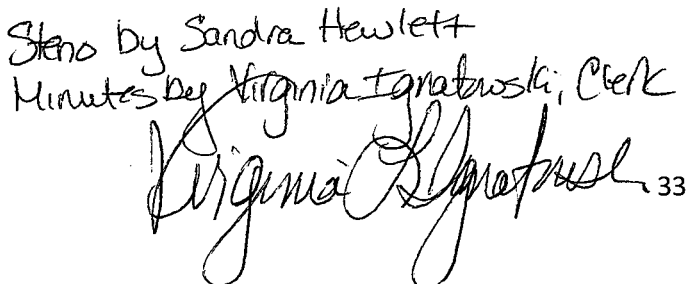 Steno by Sandra Hewlett
Minutes by Virginia Ignatowski, Clerk
Virginia L Ignatowski 33